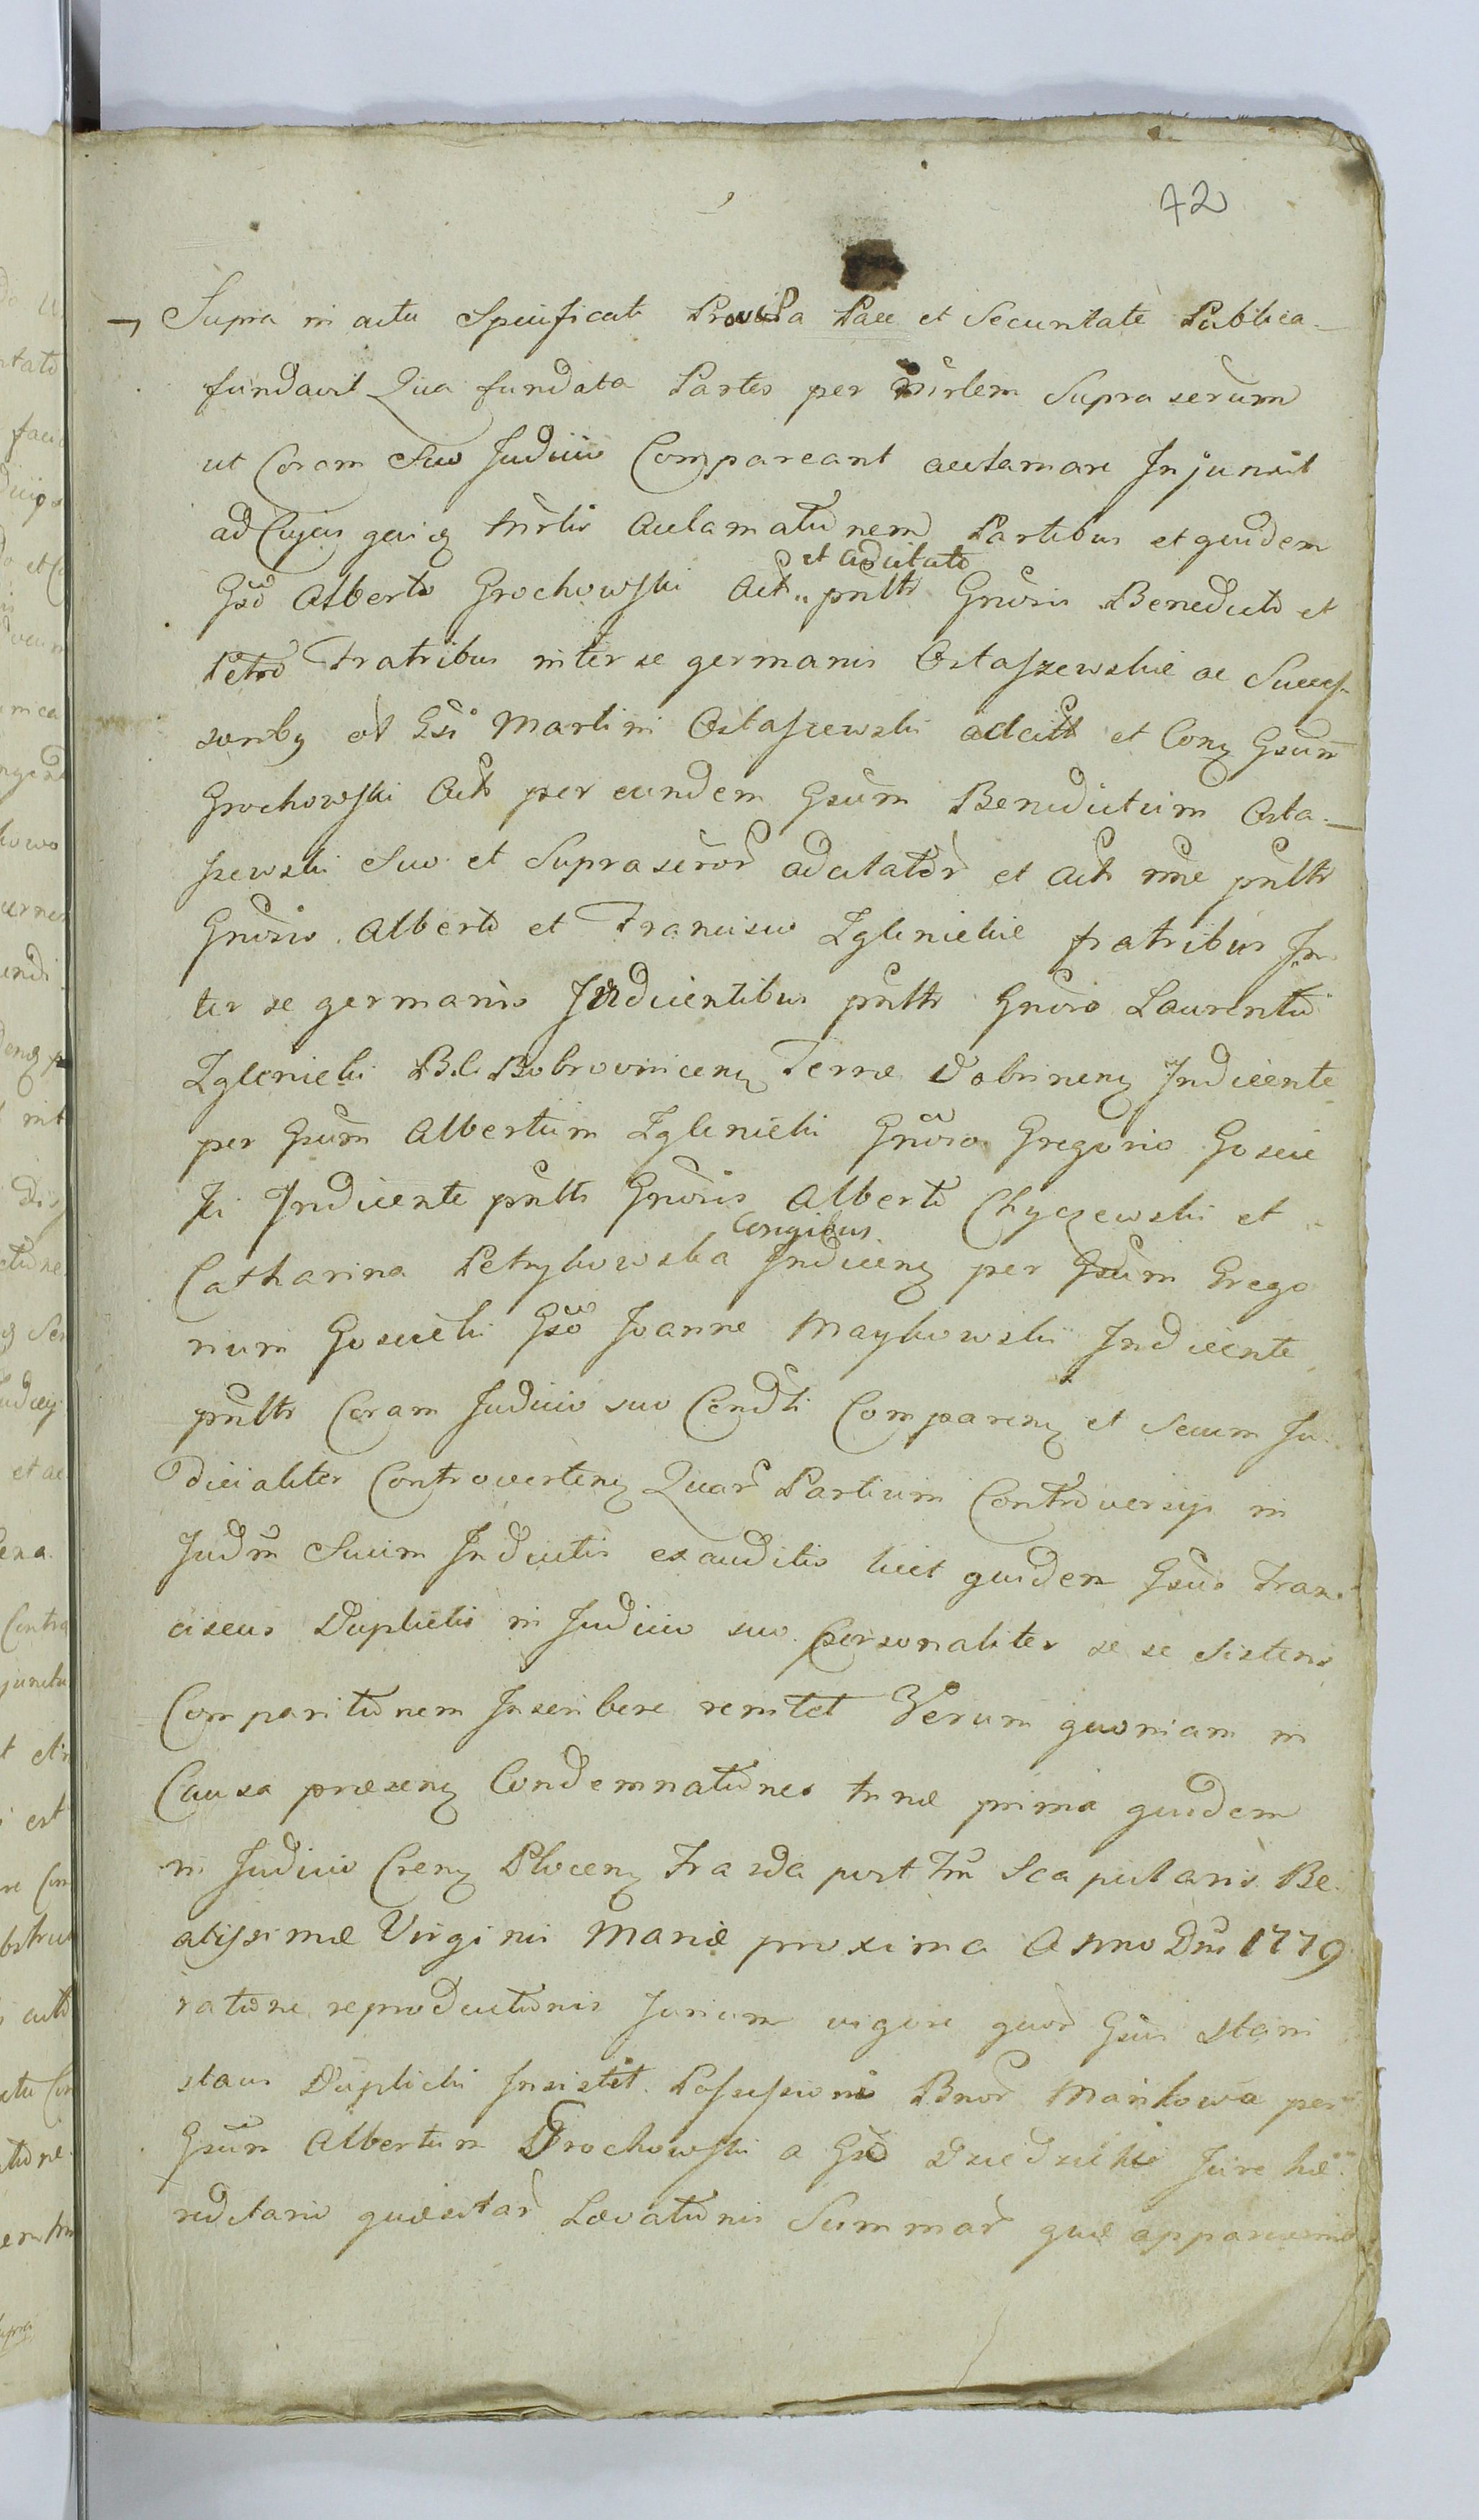 42
Supra in actu Specificat Provisa Pace et Securitate Publica
fundavit Qua fundata Partes per Mrlem Supra serum
ut Coram Suo Judicio Compareant acclamare Injunxit
ad Cujus quiq Mrlis acclamationem Partibus et quidem
et adcitato
Gso Alberto Grochowski Act pnltr Gnosis Benedicto et
Petro Fratribus inter se germanis Ostaszewskie ac Succes-
soribq ol Gsi Martini Ostaszewski adcitt et Conq Gsum
Grochowski Act per eundem Gsum Benedictum Osta-
szewski Suo et Supraseror adcitator et Act nne pnltr
Gnosis Alberto et Francisco Zglinickie fratribus In
ter se germanis Indicentibus pnltr Gnoso Laurentio
Zglenicki B.C. Bobrovnicenq Terrae Dobrinenq Indicente
per Gsum Albertum Zglinicki Gnoso Gregorio Goscic
ki Indicente pnltr Gnosis Alberto Chyczewski et
Conjgibus
Catharina Petrykowska Indicenq per Gsum Grego
rium Goscicki Gso Joanne Maykowski Indicente
pnltr Coram Judicio suo Cendti Comparenq et Secum Ju
dicialiter Controvertenq Quar Partium Controversys in
Judm Suum Inductis exauditis licet quidem Gsus Fran
ciscus Duplicki in Judicio suo personaliter se se Sistens
Comparitionem Inscribere renitet Verum quoniam in
Causa praesenq Condemnationes trinae prima quidem
in Judicio Crenq Plocenq Fraida post Fm Scapularis Be
atissimae Virginis Mariae proxima Anno Dni 1779
ratione reproductionis Jurium vigore quor Gsus Stani
slaus Duplicki Insistit Possessioni Bnor Mankowa per
Gsum Albertum Grochowski a Gso Dziedzicki Jure hae
reditario quaesitar Levationis Summar quae